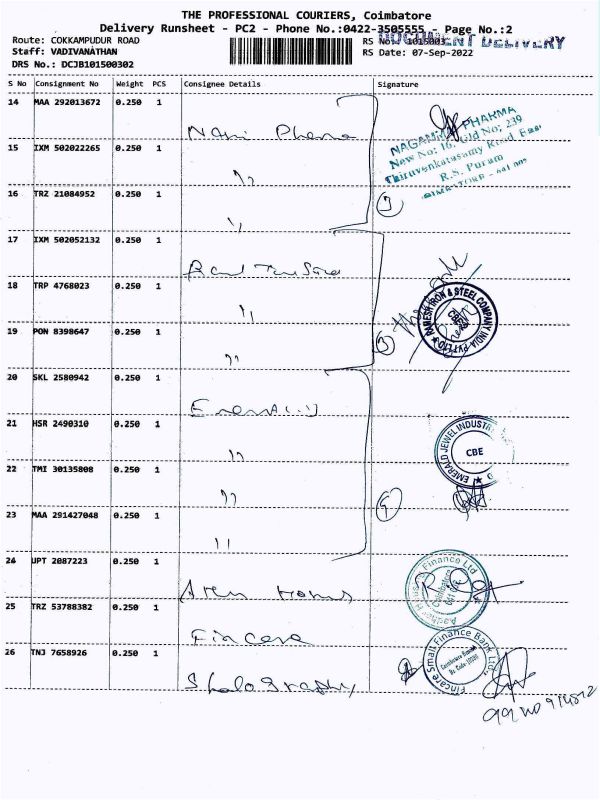 THE PROFESSIONAL COURIERS, Coimbatore
Delivery Runsheet - PC2 - Phone No.:0422-3505555 - Page No.:2
Route: COKKAMPUDUR ROAD
RS No.: 1015003
DOCUMENT DELIVERY
Staff: VADIVANATHAN
RS Date: 07-Sep-2022
DRS No.: DCJB101500302
S No Consignment No Weight PCS Consignee Details Signature
14 MAA 292013672 0.250 1
15 IXM 502022265 0.250 1
16 TRZ 21084952 0.250 1
NAGAMMAI PHARMA
New No: 16, Old No; 239
Thiruvenkatasamy Road, East
R.S. Puram
17 IXM 502052132 0.250 1
18 TRP 4768023 0.250 1
19 PON 8398647 0.250 1
RAMESH IRON & STEEL COMPANY INDIA PVT LTD
CBE
20 SKL 2580942 0.250 1
21 HSR 2490310 0.250 1
22 TMI 30135808 0.250 1
EMERALD JEWEL INDUSTR
CBE
23 MAA 291427048 0.250 1
24 UPT 2087223 0.250 1
Finance Ltd
25 TRZ 53788382 0.250 1 Fincare
26 TNJ 7658926 0.250 1
Fincare Small Finance Bank Ltd.,